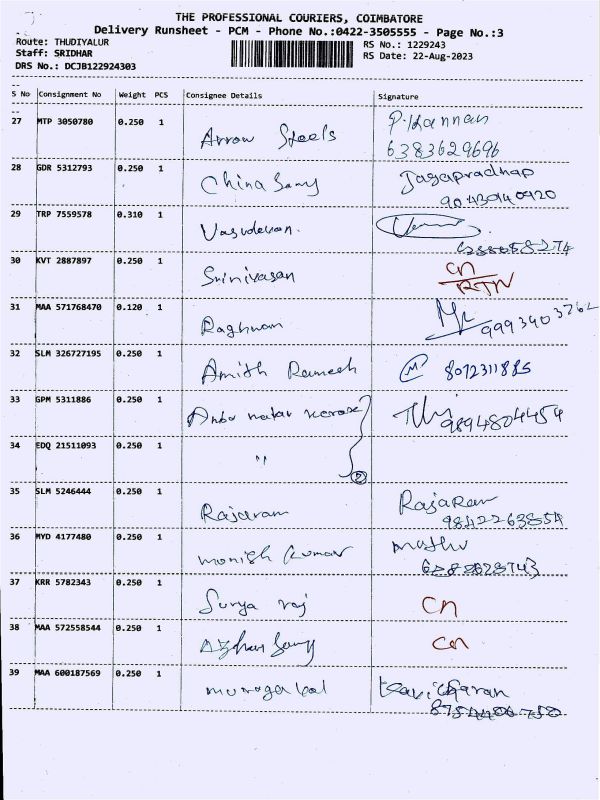 THE PROFESSIONAL COURIERS, COIMBATORE
Delivery Runsheet - PCM - Phone No.:0422-3505555 - Page No.:3
Route: THUDIYALUR
Staff: SRIDHAR
DRS No.: DCJB122924303
RS No.: 1229243
RS Date: 22-Aug-2023
S No Consignment No Weight PCS Consignee Details Signature
27 MTP 3050780 0.250 1 Arrow Steels P. Kannan
6383629696
28 GDR 5312793 0.250 1 China Samy Jagapradhap
9043940920
29 TRP 7559578 0.310 1 Vasudevan.
30 KVT 2887897 0.250 1 Srinivasan CN
RTN
31 MAA 571768470 0.120 1 Raghuram 9993403762
32 SLM 326727195 0.250 1 Amith Ramesh 8072311885
33 GPM 5311886 0.250 1 9894804454
34 EDQ 21511093 0.250 1 " 2
35 SLM 5246444 0.250 1 Rajaram Rajaram
9842263854
36 MYD 4177480 0.250 1 Monish Kumar Mathu
37 KRR 5782343 0.250 1 Surya raj CN
38 MAA 572558544 0.250 1 CN
39 MAA 600187569 0.250 1 Kavicharan